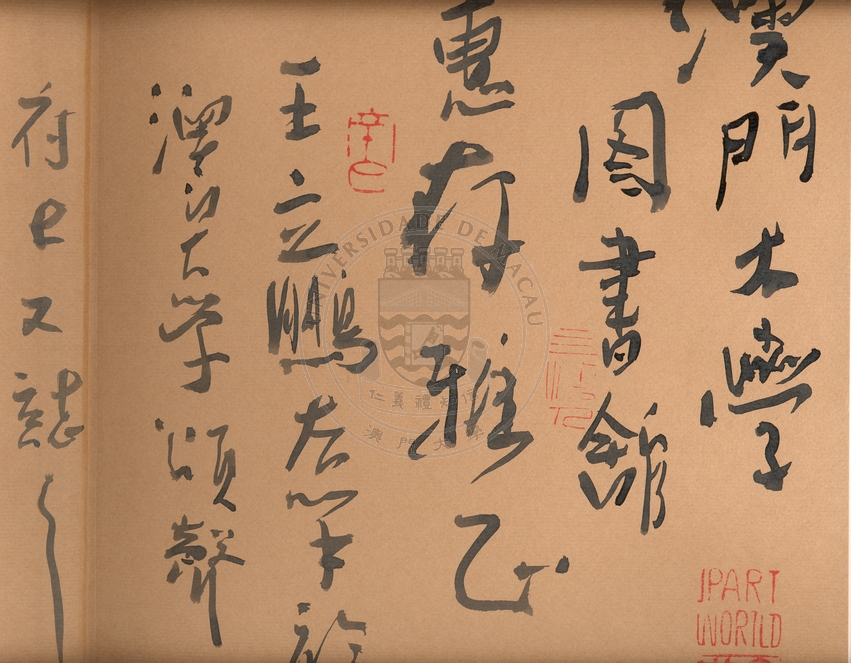 澳門大學
圖書館
惠存雅正
王立鵬左筆於
澳門大學
又誌
UNIVERSIDADE DE MACAU
仁義禮知信
澳門大學
JPART
WORLD